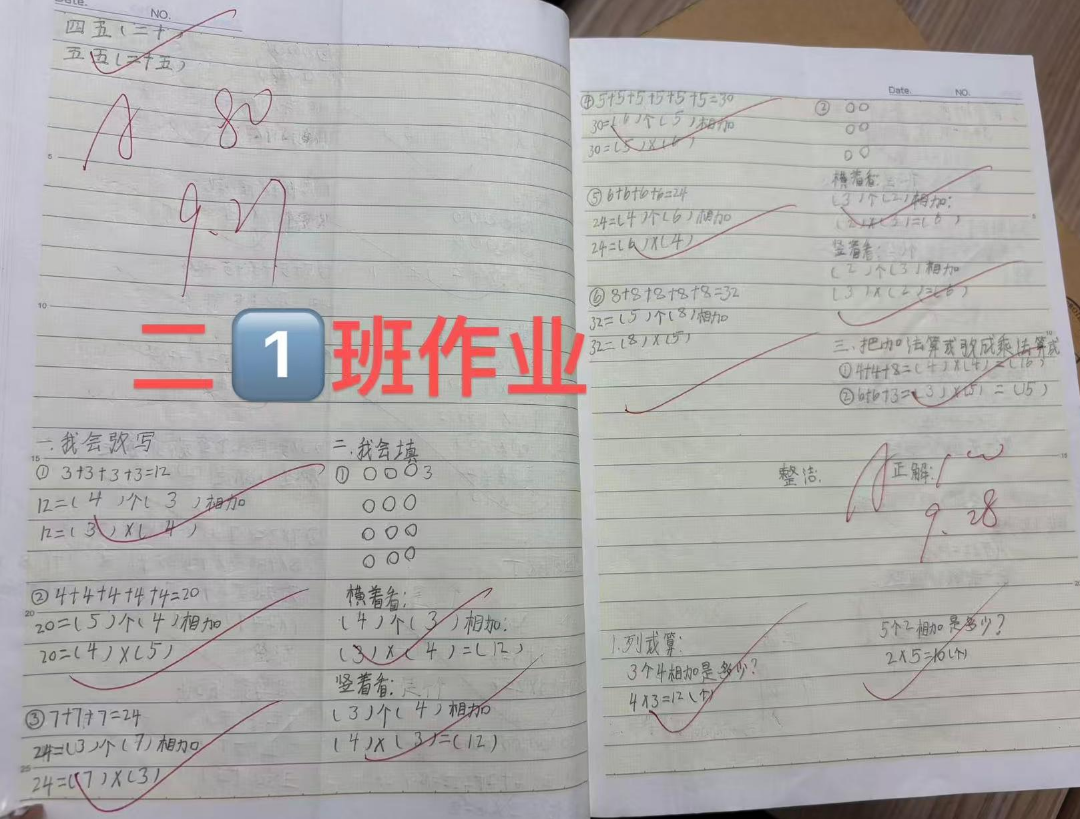 Date.
NO.
四五(二十)
五五(二十五)
A 80
9.27
二1班作业
一.我会改写
① 3+3+3+3=12
12=(4)个(3)相加
12=(3)×(4)
② 4+4+4+4+4=20
20=(5)个(4)相加
20=(4)×(5)
③ 7+7+7=24
24=(3)个(7)相加
24=(7)×(3)
二.我会填
① ○○○3
○○○
○○○
○○○
横着看:
(4)个(3)相加:
(3)×(4)=(12)
竖着看:
(3)个(4)相加
(4)×(3)=(12)
④ 5+5+5+5+5+5=30
30=(6)个(5)相加
30=(5)×(6)
⑤ 6+6+6+6=24
24=(4)个(6)相加
24=(6)×(4)
⑥ 8+8+8+8+8=32
32=(5)个(8)相加
32=(8)×(5)
Date.
NO.
② ○○
○○
○○
横着看:
(3)个(2)相加:
(2)×(3)=(6)
竖着看:
(2)个(3)相加
(3)×(2)=(6)
三.把加法算式改成乘法算式
① 4+4+8=(4)×(4)=(16)
② 6+6+3=(3)×(5)=(15)
整洁: A 正解: 100
9.28
1.列式算:
3个4相加是多少?
4×3=12(个)
5个2相加是多少?
2×5=10(个)